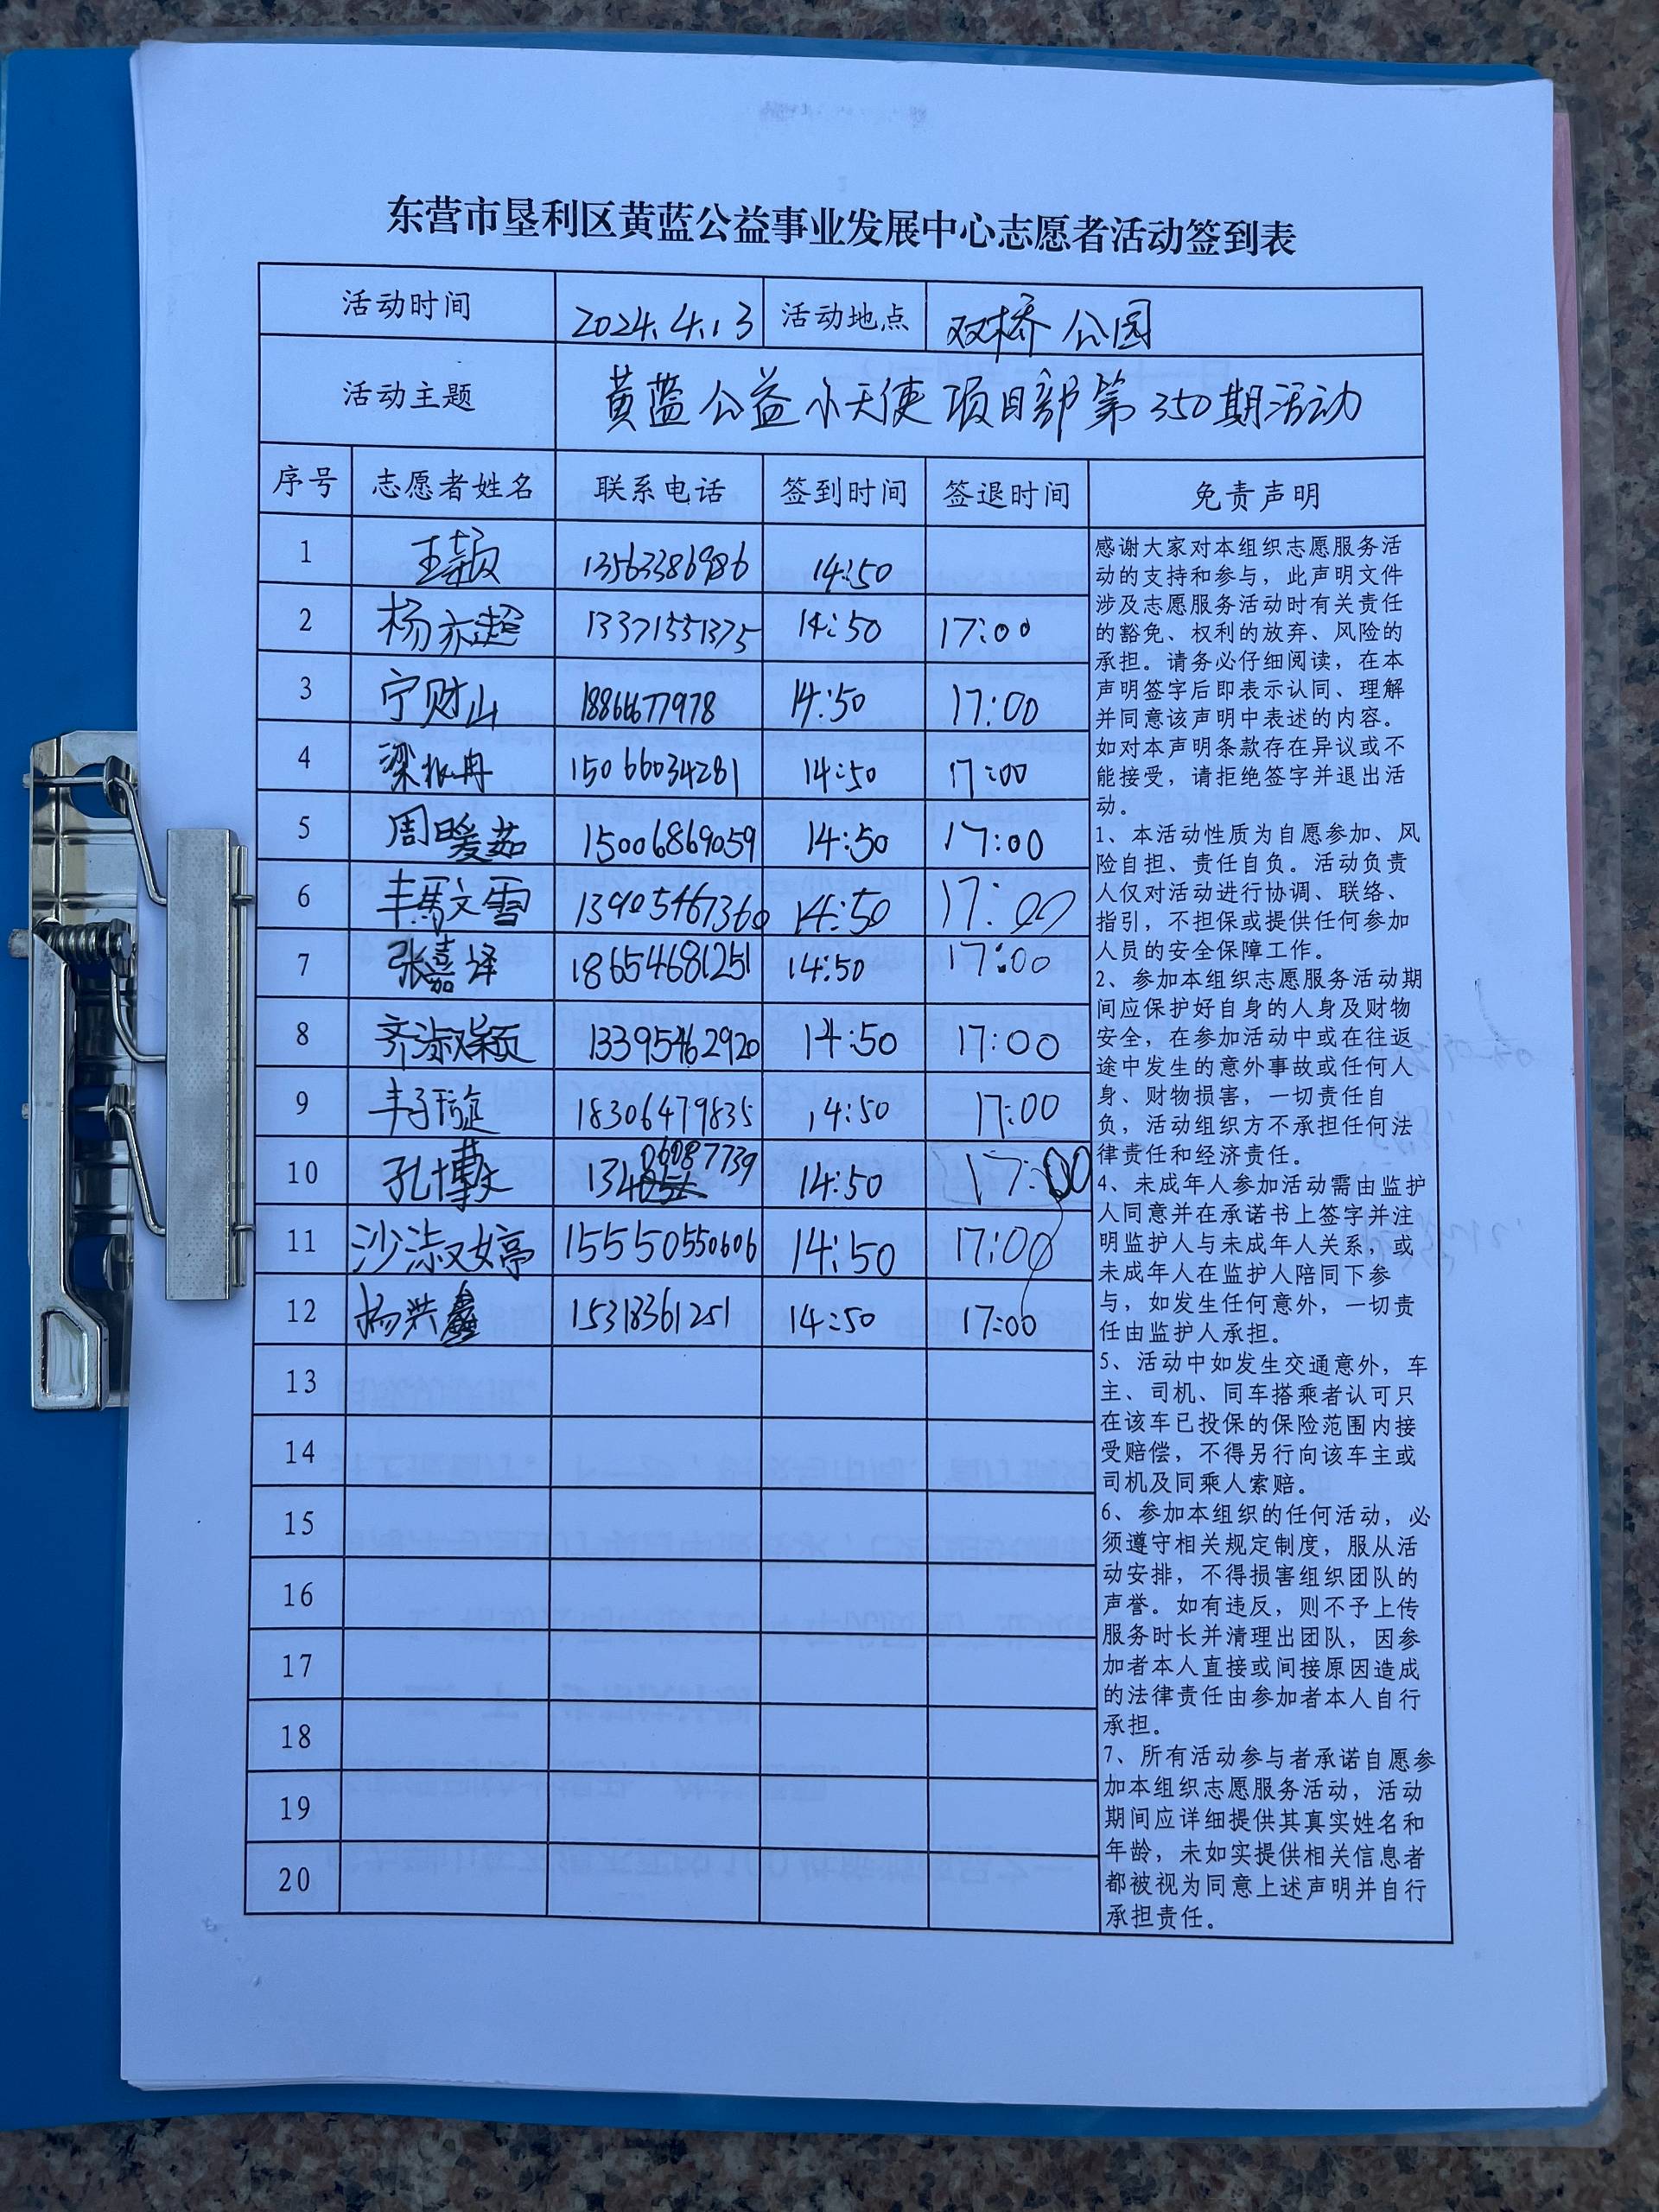 东营市垦利区黄蓝公益事业发展中心志愿者活动签到表
活动时间 2024.4.13 活动地点 双桥公园
活动主题 黄蓝公益小天使项目部第350期活动
序号 志愿者姓名 联系电话 签到时间 签退时间 免责声明
1 王颖 13563386986 14:50
2 杨亦超 13371551375 14:50 17:00
3 宁财山 18866677978 14:50 17:00
4 梁 冉 15066034281 14:50 17:00
5 周暖茹 15006869059 14:50 17:00
6 丰文雪 13905467360 14:50 17:00
7 张嘉译 18654681251 14:50 17:00
8 齐淑颖 13395462920 14:50 17:00
9 丰子 18306479835 14:50 17:00
10 孔博文 13406087739 14:50 17:00
11 沙淑婷 15550550606 14:50 17:00
12 杨洪鑫 15318361251 14:50 17:00
13
14
15
16
17
18
19
20
感谢大家对本组织志愿服务活
动的支持和参与，此声明文件
涉及志愿服务活动时有关责任
的豁免、权利的放弃、风险的
承担。请务必仔细阅读，在本
声明签字后即表示认同、理解
并同意该声明中表述的内容。
如对本声明条款存在异议或不
能接受，请拒绝签字并退出活
动。
1、本活动性质为自愿参加、风
险自担、责任自负。活动负责
人仅对活动进行协调、联络、
指引，不担保或提供任何参加
人员的安全保障工作。
2、参加本组织志愿服务活动期
间应保护好自身的人身及财物
安全，在参加活动中或在往返
途中发生的意外事故或任何人
身、财物损害，一切责任自
负，活动组织方不承担任何法
律责任和经济责任。
4、未成年人参加活动需由监护
人同意并在承诺书上签字并注
明监护人与未成年人关系，或
未成年人在监护人陪同下参
与，如发生任何意外，一切责
任由监护人承担。
5、活动中如发生交通意外，车
主、司机、同车搭乘者认可只
在该车已投保的保险范围内接
受赔偿，不得另行向该车主或
司机及同乘人索赔。
6、参加本组织的任何活动，必
须遵守相关规定制度，服从活
动安排，不得损害组织团队的
声誉。如有违反，则不予上传
服务时长并清理出团队，因参
加者本人直接或间接原因造成
的法律责任由参加者本人自行
承担。
7、所有活动参与者承诺自愿参
加本组织志愿服务活动，活动
期间应详细提供其真实姓名和
年龄，未如实提供相关信息者
都被视为同意上述声明并自行
承担责任。